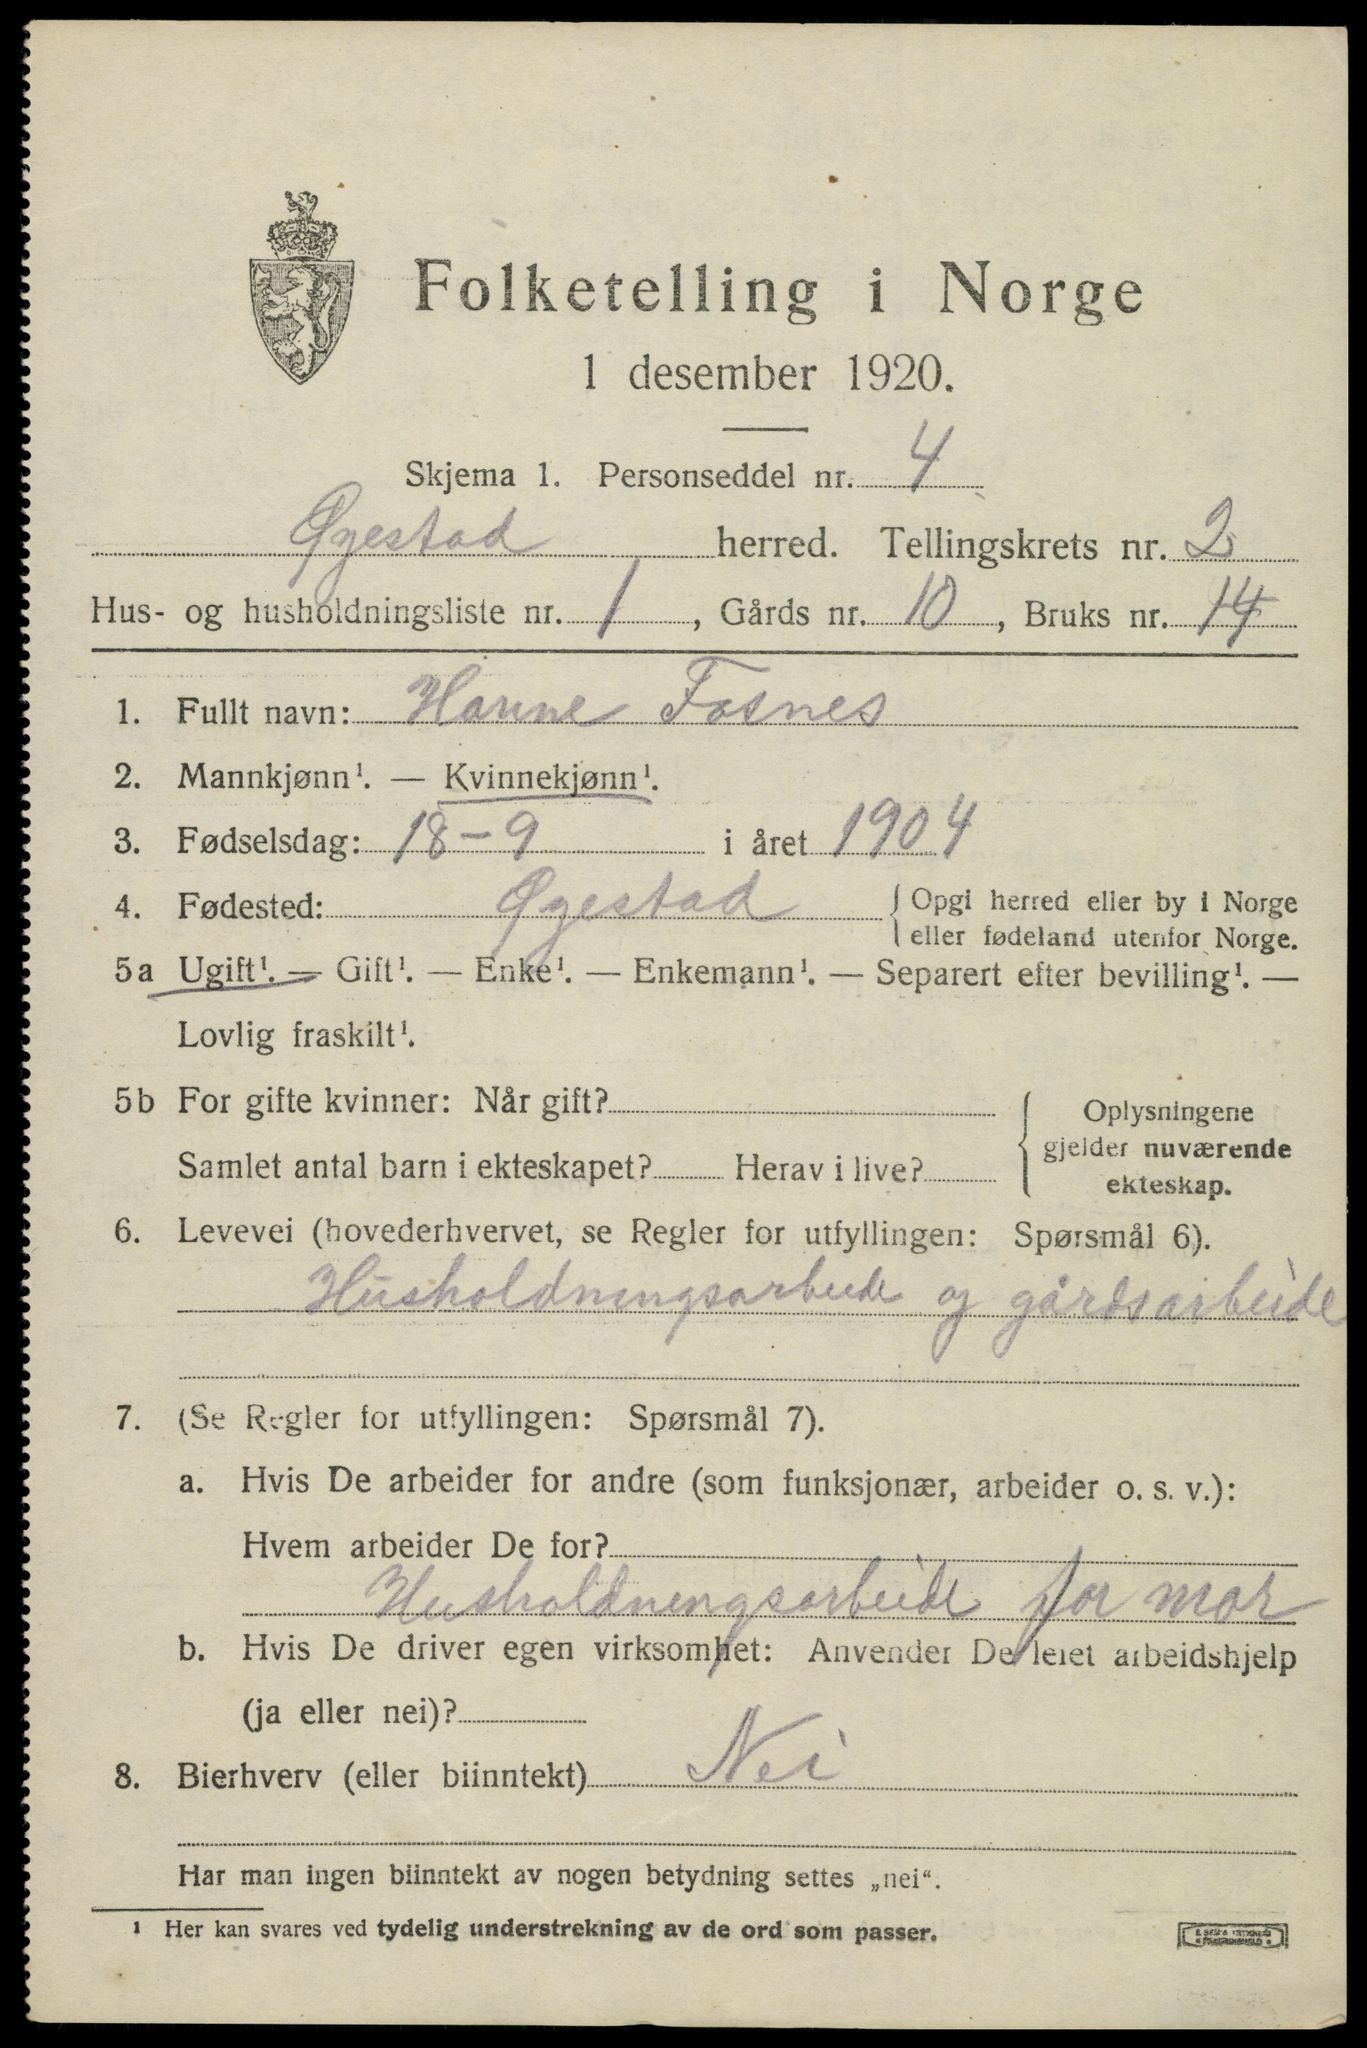 Folketelling i Norge
1 desember 1920.
Skjema 1. Personseddel nr. 4
Øyestad herred. Tellingskrets nr. 2
Hus- og husholdningsliste nr. 1, Gårds nr. 10, Bruks nr. 14
1. Fullt navn: Hanne Fosnes
2. Mannkjønn¹. — Kvinnekjønn¹.
3. Fødselsdag: 18-9 i året 1904
4. Fødested: Øyestad { Opgi herred eller by i Norge
eller fødeland utenfor Norge.
5a Ugift¹. — Gift¹. — Enke¹. — Enkemann¹. — Separert efter bevilling¹. —
Lovlig fraskilt¹.
5b For gifte kvinner: Når gift?
Samlet antal barn i ekteskapet? Herav i live?
Oplysningene
gjelder nuværende
ekteskap.
6. Levevei (hovederhvervet, se Regler for utfyllingen: Spørsmål 6).
Husholdningsarbeide og gårdsarbeide
7. (Se Regler for utfyllingen: Spørsmål 7).
a. Hvis De arbeider for andre (som funksjonær, arbeider o. s. v.):
Hvem arbeider De for?
Husholdningsarbeide for mor
b. Hvis De driver egen virksomhet: Anvender De leiet arbeidshjelp
(ja eller nei)?
8. Bierhverv (eller biinntekt) Nei
Har man ingen biinntekt av nogen betydning settes „nei“.
¹ Her kan svares ved tydelig understrekning av de ord som passer.